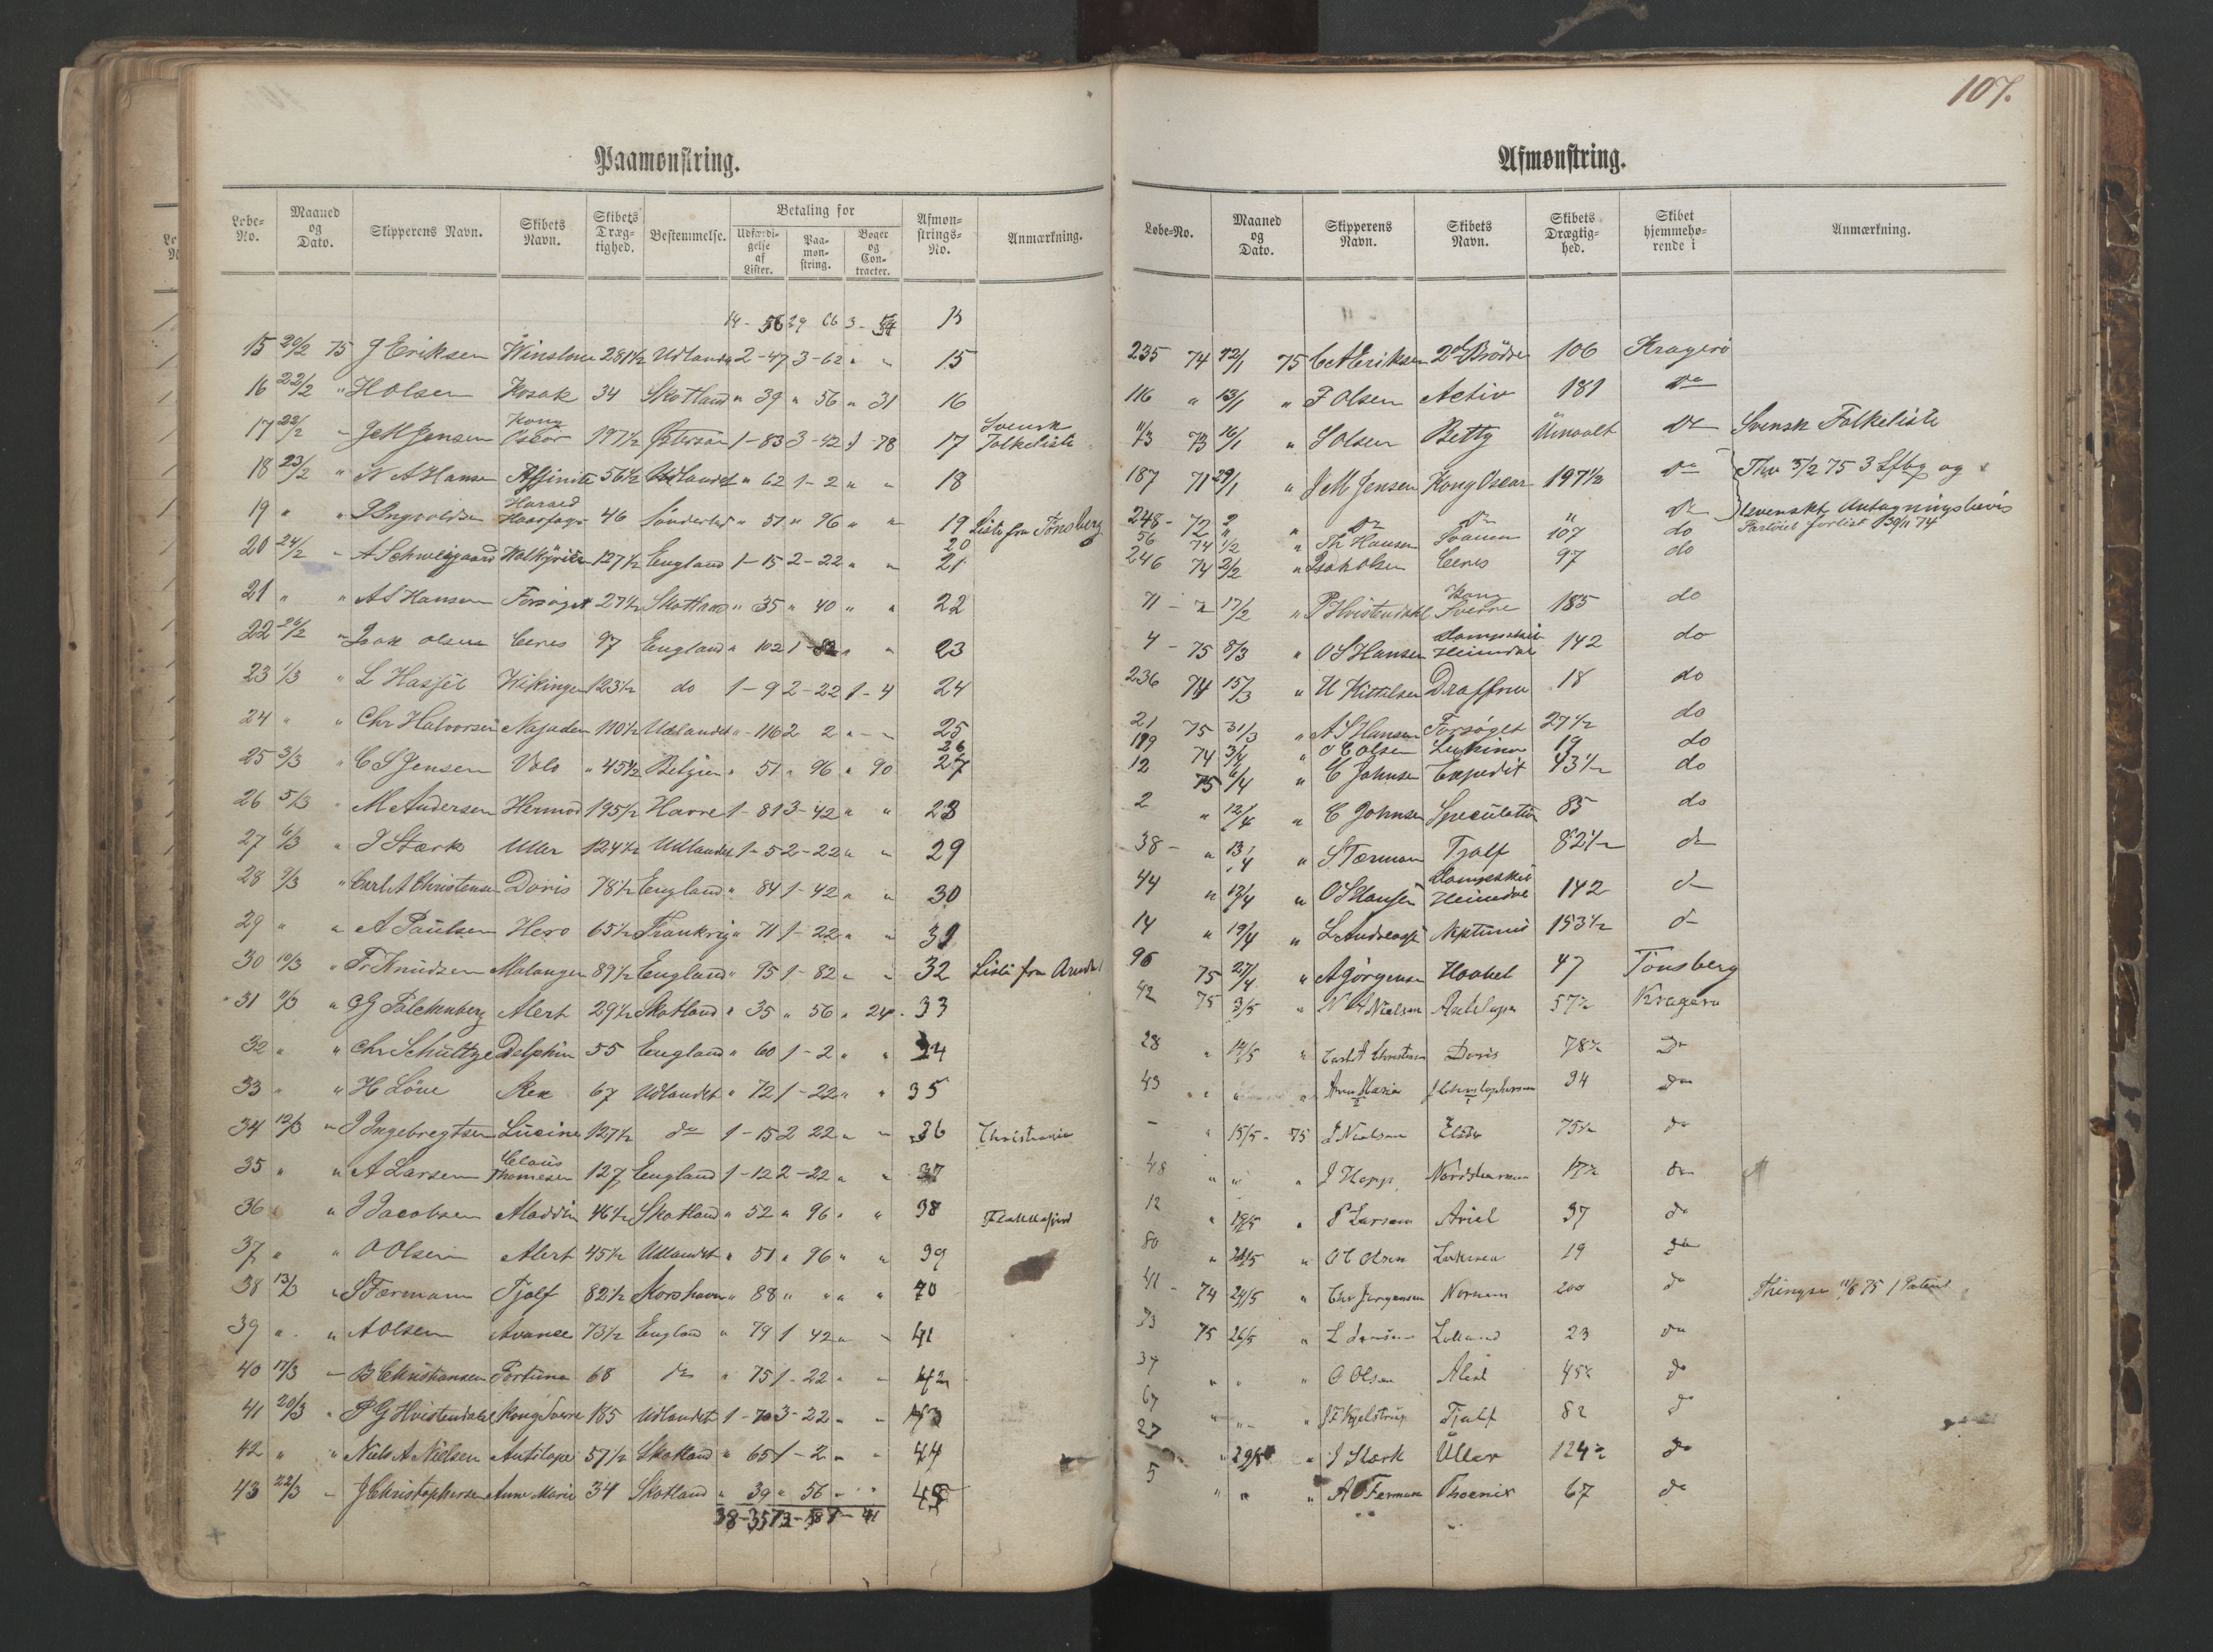 107.
Paamønstring.
Løbe-No. Maaned og Dato. Skipperens Navn. Skibets Navn. Skibets Dræg-tighed. Bestemmelse. Betaling for Udfærdi-gelse af Lister. Paa-møn-string. Bøger og Con-tracter. Afmøn-strings-No. Anmærkning.
15 20/2 75 J Eriksen 281½ Udlandet 2-47 3-62 " " 15
16 22/2 " H Olsen Kosak 34 Skotland " 39 " 56 " 31 16
17 22/2 " J M Jensen Kong Oscar 197½ Østersøn 1-83 3-42 1-78 17 Svensk Folkeliste
18 23/2 " N A Hansen Affinite 56½ Udlandet " 62 1-2 " " 18
19 " " Harald Haarfagr 46 " 51 " 96 " " 19 Liste fra Tönsberg
20
20 24/2 " A Schweigaard Walkyrien 127½ England 1-15 2-22 " " 21
21 " " A S Hansen Forsøget 27½ Skotland " 35 " 40 " " 22
22 26/2 " Isak Olsen Ceres 97 England " 102 1-82 " " 23
23 1/3 " L Hasjel Wikingen 123½ do 1-9 2-22 1-4 24
24 " " Chr Halvorsen Najaden 110½ Udlandet " 116 2 2 " " 25
26
25 3/3 " C S Jensen Volo " 45½ Belgien " 51 " 96 " 90 27
26 5/3 " M Andersen Hermod 195½ Havre 1-81 3-42 " " 28
27 6/3 " J Stærk Uller 124½ Udlandet 1-5 2-22 " " 29
28 9/3 " Carl A Christensen Doris 78½ England " 84 1-42 " " 30
29 " " A Paulsen Hero 65½ Frankrig " 71 1-22 " " 31
30 10/3 " Fr Knudsen Malangen 89½ England " 95 1-82 " " 32 Liste fra Arendal
31 11/3 " G Falchenberg Alert 29½ Skotland " 35 " 56 " 24 33
32 " " Chr Schultze Delphin 55 England " 60 1-2 " " 34
33 " " H Löve Rex 67 Udlandet " 72 1-22 " " 35
34 12/3 " J Ingebregtsen Lucine 127½ do 1-15 2 22 " " 36 Christiania
35 " " A Larsen Claus Thomesen 127 England 1-12 2-22 " " 37
36 " " J Jacobsen Aladdin 46½ Skotland " 52 " 96 " " 38
37 " " O Olsen Alert 45½ Udlandet " 51 " 96 " " 39
38 13/3 " S Færmann Tjalf 82½ Korshavn " 88 " " " " 40
39 " " A Olsen Avance 73½ England " 79 1 42 " " 41
40 17/3 " B Christiansen Fortuna 68 do " 75 1-22 " " 42
41 20/3 " P G Hvistendahl Kong Sverre 185 Udlandet 1-70 3-22 " " 43
42 " " Niels A Nielsen Antilope 57½ Skotland " 65 1-2 " " 44
43 22/3 " J Christophersen Anne Marie 34 Skotland " 39 " 56 " " 45
Afmønstring.
Løbe-No. Maaned og Dato. Skipperens Navn. Skibets Navn. Skibets Drægtig-hed. Skibet hjemmehø-rende i Anmærkning.
235 74 12/1 75 C A Eriksen 2de Brødre 106 Kragerö
116 " 13/1 " F Olsen Activ 181 do
11/73 73 16/1 " S Olsen Betty Umaalt do Svensk Folkeliste
187 71 29/1 " J M Jensen Kong Oscar 197½ do
248 - 72 " " do do " do
56 74 1/2 " Th Hansen Svanen 107 do
246 74 2/2 " Isak Olsen Ceres 97 do
71 - " 17/2 " P Hvistendahl Kong Sverre 185 do
4 - 75 8/3 " O S Hansen Dampskib Heimdal 142 do
236 74 15/3 " U Kittilsen 18 do
21 75 31/3 " A S Hansen Forsøget 27½ do
74 " O C Olsen 19 do
12 75 6/4 " C Johnsen Expedit 43½ do
2 " 12/4 " C Johnsen Speculation 85 do
38 - " 13/4 " S Færmann Tjalf 82½ do
44 " " O S Hansen Dampskib Heimdal 142 do
14 " 19/4 " L Andreasen Neptunus 153½ do
96 75 27/4 " A Jörgensen Haabet 47 Tönsberg
42 75 3/5 " N A Nielsen Antilope 57½ Kragerø
28 " 14/5 " Carl A Christensen Doris 78½ do
43 " " " Anne Maria J Christophersen 34 do
- " 15/5 - 75 J Nielsen 75½ do
48 " " " 17½ do
12 " 19/5 " P Larsen Ariel 37 do
80 " " O C Olsen 19 do
41 - 74 24/5 " Chr Jörgensen Nornen 200 do
75 26/5 " 23 do
37 " " " O Olsen Alert 45½ do
67 " " " Tjalf 82 do
27 " 29/5 " J Stærk Uller 124½ do
5 " " " A Færmann Phoenix 67 do